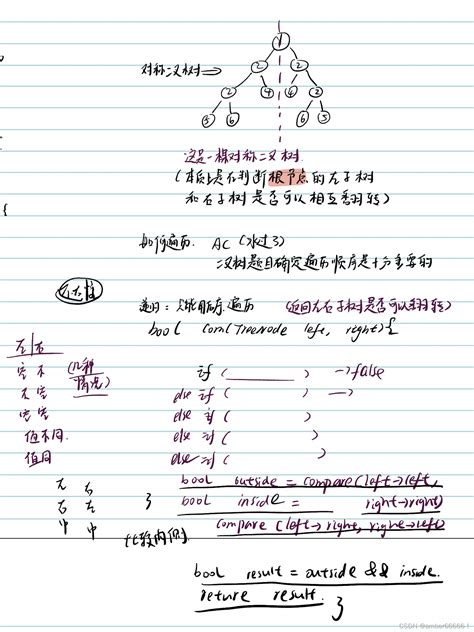 1
对称二叉树→
2 2
2 4 4 2
5 6 6 5
这是一棵对称二叉树.
(本质是否判断根节点的左子树
和右子树是否可以相互翻转)
{
如何遍历. AC (水过3)
二叉树题目确定遍历顺序是十分重要的
递归: 只能用后序遍历 (返回左右子树是否可以翻转)
bool com(TreeNode left, right){
左 右
空 不 (几种情况) if ( ) →false
不 空 else if ( ) →
空 空 else if ( )
值不同. else if ( )
值同 else if ( )
左 右 bool outside = compare(left→left,
右 左 } bool inside = right→right)
中 中 compare (left→right, right→left)
比较内侧
bool result = outside && inside.
return result. }
CSDN @amber66666